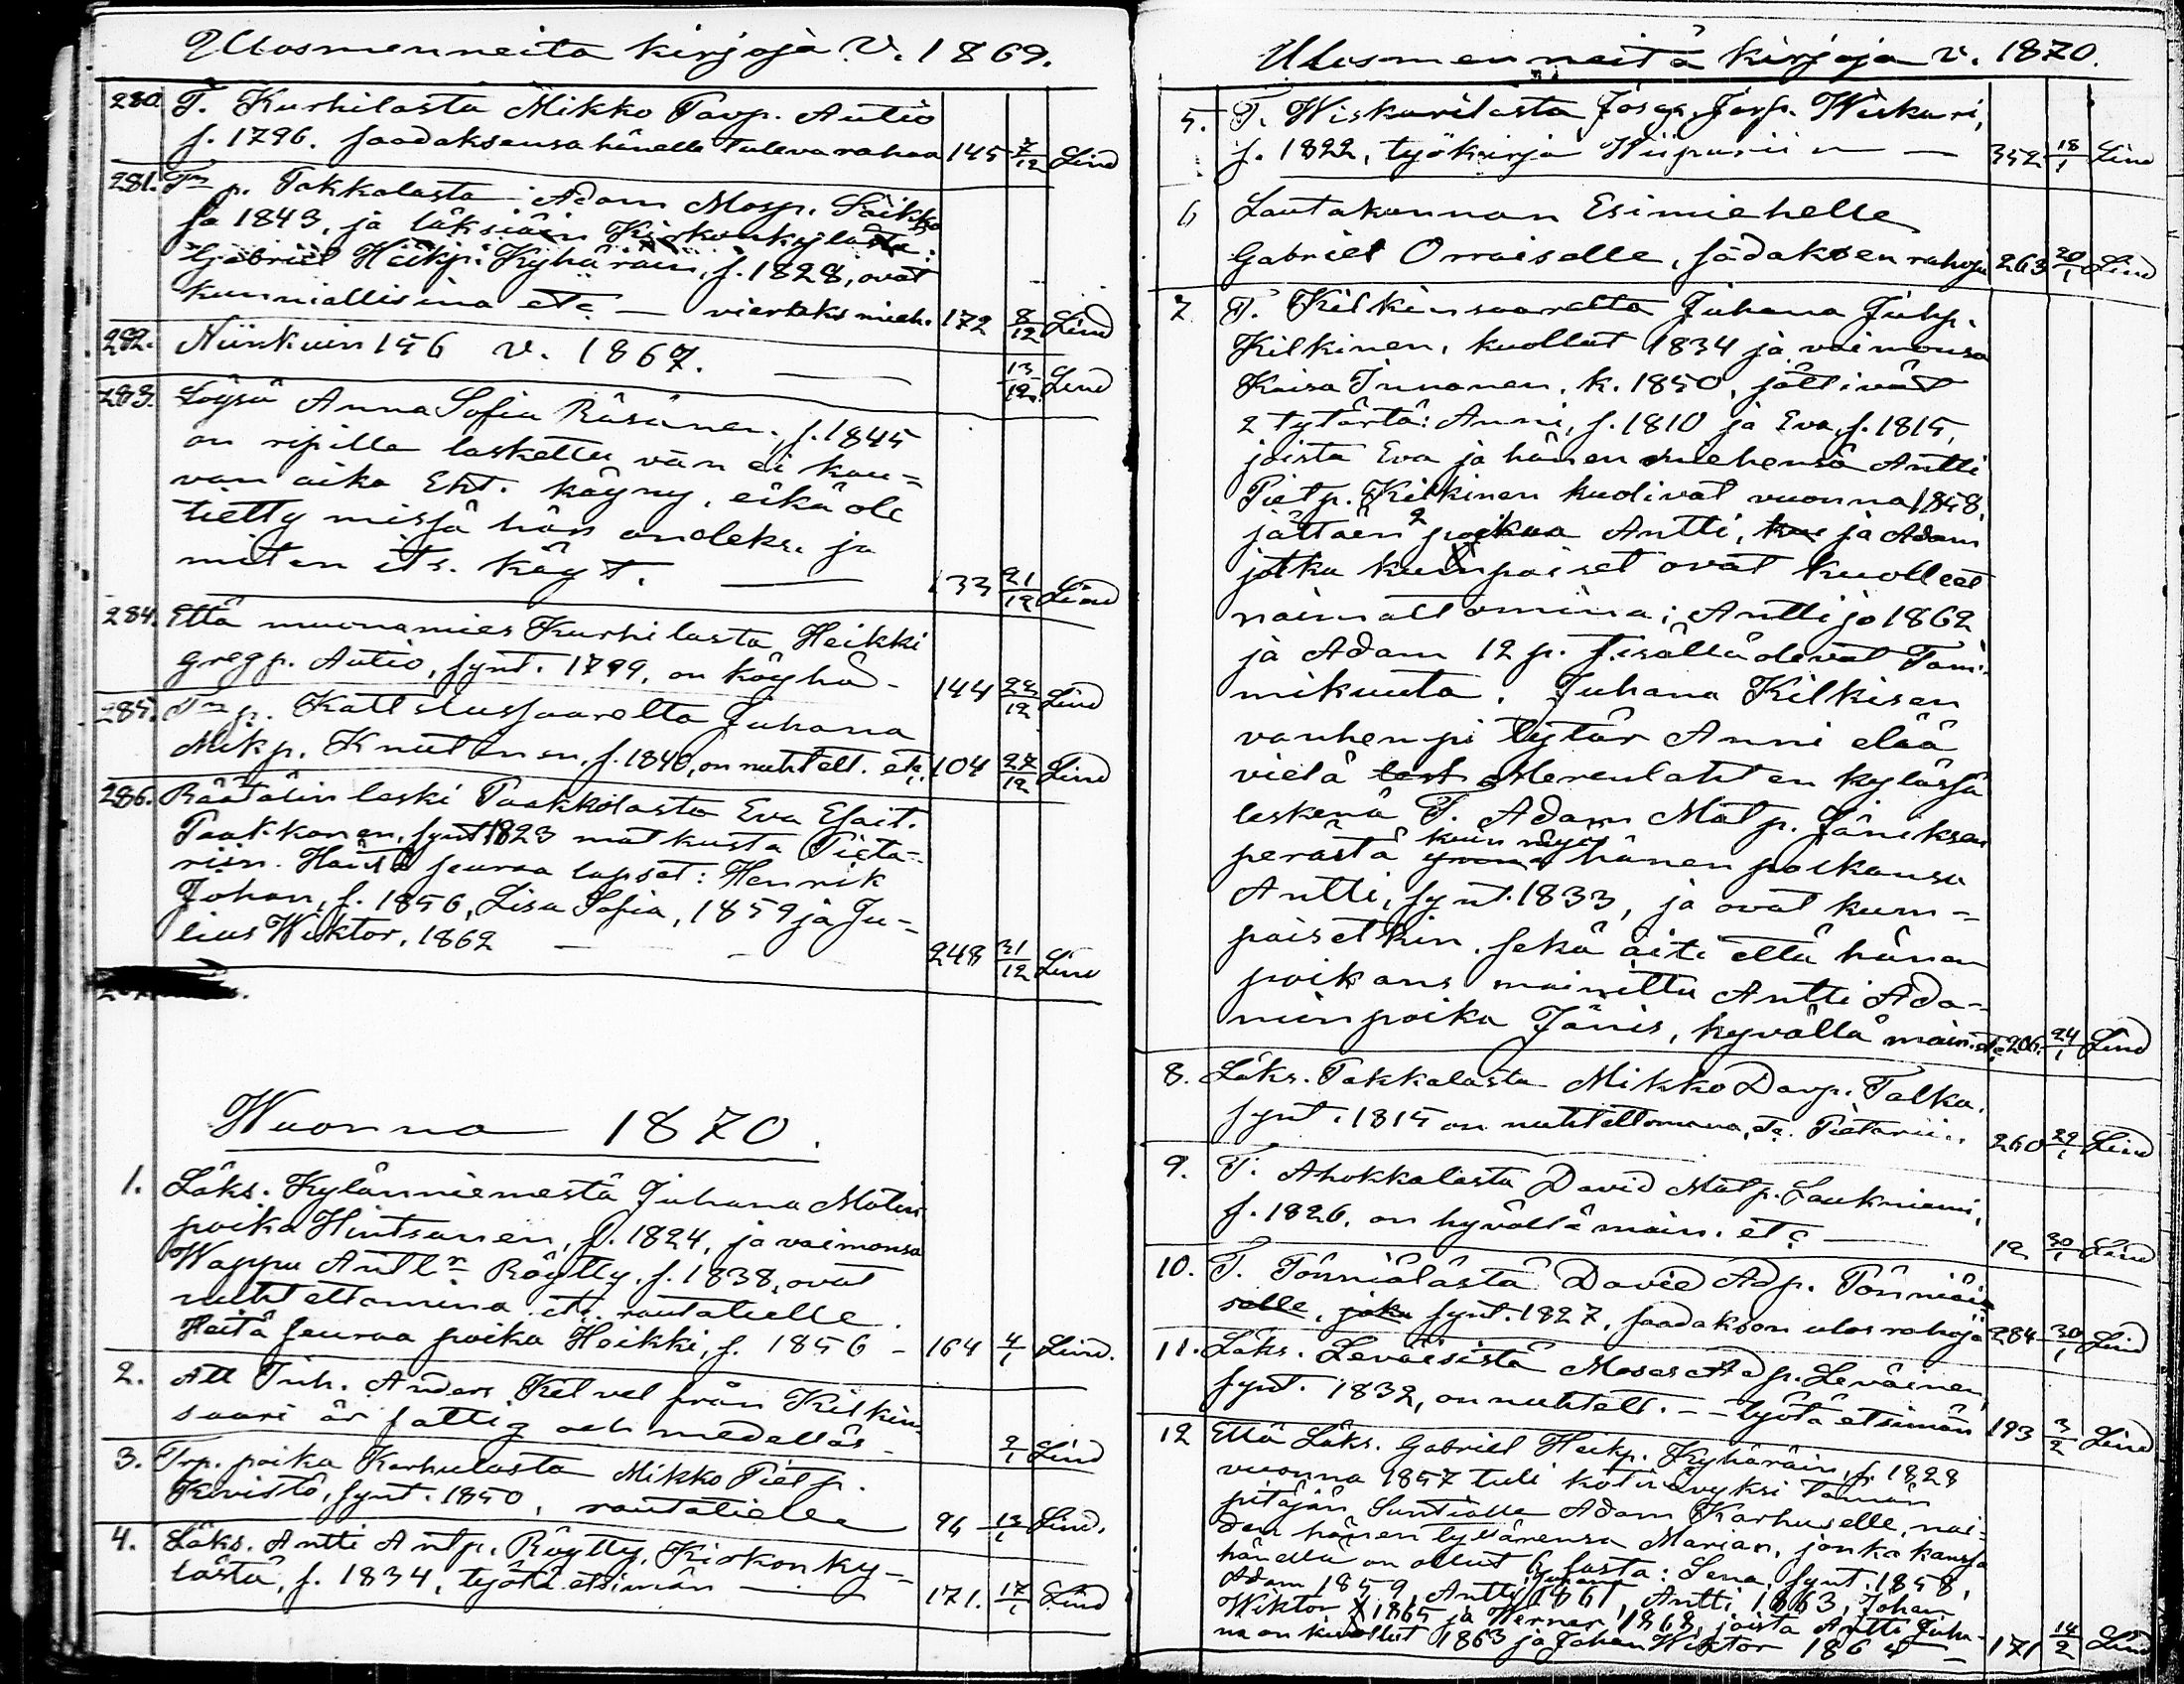 Ulosmenneitä kirjoja V. 1869.
280. T. Kurhilasta Mikko Pavp. Autio
s. 1796. saadaksensa hänelle tuleva rahaa 145 7/12 Lind
281. Tm p. Takkalasta Adam Mosp. Säikkö
sa 1843, ja läksiäin Kirkonkylästä:
Gabriel Heikp. Kyhäräin, s. 1828, ovat
kunniallisina etc — vierteks mieh. 172 8/12 Lind
282. Niinkuin 156 v. 1867. — 13/12 Lind
283. Löysä Anna Sofia Räsänen, s. 1845
on ripille laskettu vän ei kau=
van aika Eht. käyny, eikä ole
tietty missä hän oneleks. ja
miten its. käyt. — 133 21/12 Lind
284. Että muonamies Kurhilasta Heikki
Gregp. Autio, synt. 1799, on köyhä - 144 24/12 Lind
285. Tm p. Kattelussaarelta Juhana
Mikp. Knuutinen, s. 1840, on nuhtelt. etc. 104 27/12 Lind
286. Räätälin leski Paakkolasta Eva Esait.
Paakkonen, synt 1823 matkusta Pieta=
riin. Häntä seuraa lapset: Henrik
Johan, s. 1856, Lisa Sofia, 1859 ja Ju=
lius Wiktor, 1862 — - 248 31/12 Lind
Wuonna 1870.
1. Läks. Kylänniemestä Juhana Matin
poika Hintsanen, s. 1824, ja vaimonsa
Wappu Anttr Röytty, s. 1838, ovat
nuhtettomina etc. rautatielle.
Heitä seuraa poika Heikki, s. 1856 - 164 4/1 Lind.
2. Att Inh. Anders Kelvel från Kilkin=
saari är fattig och medellös - 9/1 Lind
3. Trp. poika Karhulasta Mikko Pietp.
Kavistö, synt. 1850, rautatielle 96 13/1 Lind.
4. Läks. Antti Antp. Röytty, Kirkonky=
lästä, s. 1834, työtä etsimän — 171. 17/1 Lind
Ulosmenneitä kirjoja v. 1870.
5. T. Wiskarilasta Josep. Josp. Wiskari,
s. 1822, työkirja Wiipuriin — 352 18/1 Lind
6 Lautakunnan Esimiehelle
Gabriel Orraiselle, sädaksen rahoja 263 20/1 Lind
7. T. Kilkinsaarelta Juhana Juhp.
Kilkinen, kuollut 1834 ja vaimonsa
Kaisa Innanen, k. 1850, jättivät
2 tytärtä: Anni, s. 1810 ja Eva, s. 1815,
joista Eva ja hänen miehensä Antti
Pietp. Kilkinen kuolivat vuonna 1858,
jättäen 2 poikaa Antti, ja Adam
jotka kumpaiset ovat kuolleet
naimattomina; Antti jo 1862
ja Adam 12 p. sisällä olevat Tam=
mikuuta. Juhana Kilkisen
vanhempi tytär Anni elää
vielä Merenlahten kylässä
leskenä T. Adam Matp. Jäniksen
perästä kuin myös hänen poikansa
Antti, synt. 1833, ja ovat kum=
paisetkin, sekä äiti että hänen
poikans mainittu Antti Ada=
minpoika Jänis, hyvällä main. etc 206. 24/1 Lind
8. Läks. Takkalasta Mikko Davp. Talka,
synt. 1815 on nuhtettomana, etc. Pietariin. 260 29/1 Lind
9. T. Ahokkalasta David Matp. Laukniemi,
s. 1826, on hyvällä main. etc — 12 30/1 Lind
10. T. Tönniälästä David Adp. Tönniäi
selle, joka synt. 1827, saadaksen ulos rahoja 284 30/1 Lind
11. Läks. Leväisistä Moses Adp. Leväinen,
synt. 1832, on nuhtelt. -- työtä etsimän 193 3/2 Lind
12 Että Läks. Gabriel Heikp. Kyhäräin, s. 1828
vuonna 1857 tuli kotivävyksi tämän
pitäjän Suntialle Adam Karhuselle, nai=
den hänen tyttärensä Marian, jonka kanssa
hänellä on ollut 6 lasta: Lena, synt. 1858,
Adam 1859, Antti Juhana 1861, Antti 1863, Johan
Wiktor 1865 ja Werner 1868, joista Antti Juha=
na on kuollut 1863 ja Johan Wiktor 186 — 171 14/2 Lind